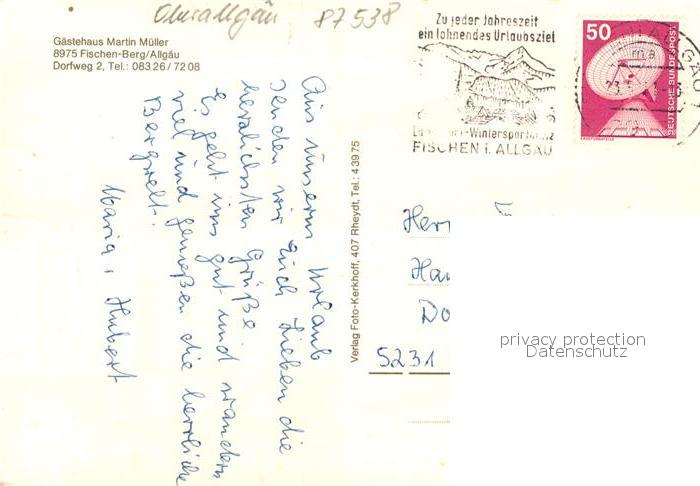 Oberallgäu 87538
Gästehaus Martin Müller
8975 Fischen-Berg/Allgäu
Dorfweg 2, Tel.: 083 26 / 72 08
Zu jeder Jahreszeit
ein lohnendes Urlaubsziel
FISCHEN i. ALLGÄU
50
DEUTSCHE BUNDESPOST
Aus unserm Urlaub
senden wir Euch Lieben die
herzlichsten Grüße
Es geht uns gut und wandern
viel und genießen die herrliche
Bergwelt.
Maria, Hubert
Verlag Foto-Kerkhoff, 407 Rheydt, Tel.: 43975
Herr
Ha
Do
5231
privacy protection
Datenschutz